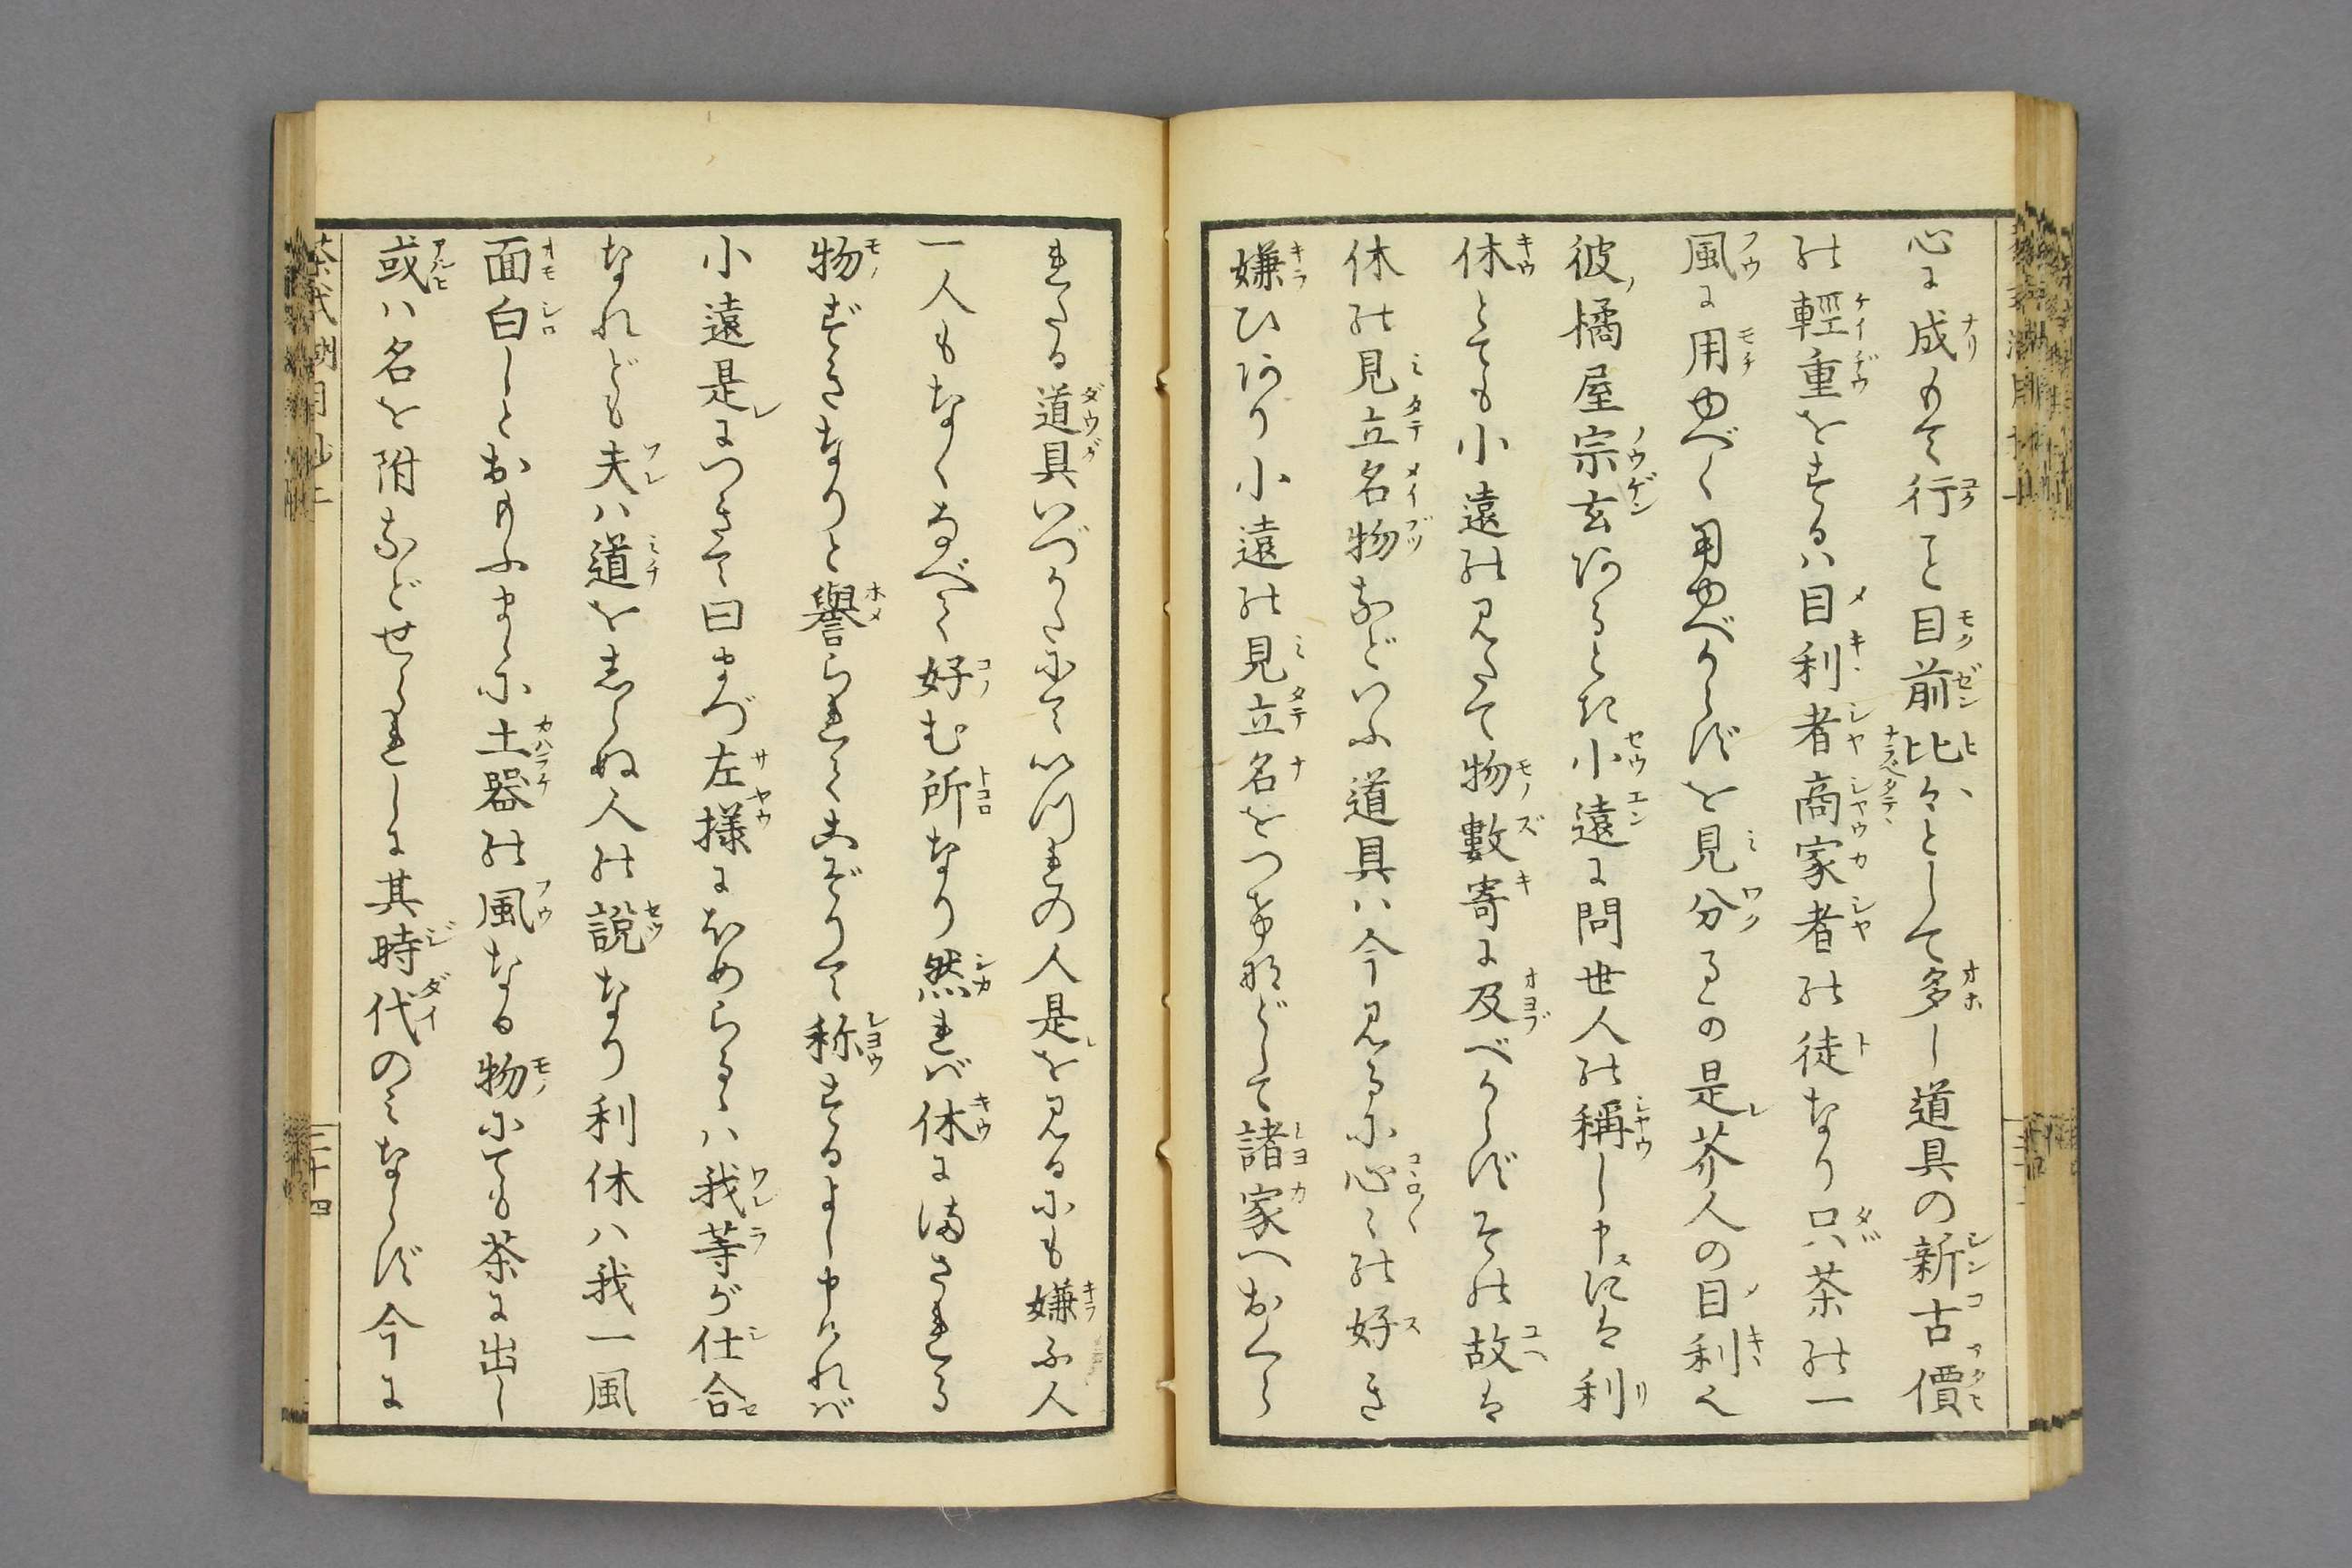 心に成もて行こと目前比々として多し道具の新古價
の輕重をするハ目利者商家者の徒なり只茶の一
風に用ゆべく用ゆべからずを見分るの是茶人の目利也
彼橘屋宗玄あるとき小遠に問世人の稱し申には利
休とても小遠の見たて物數寄に及べからずその故は
休の見立名物などいふ道具ハ今見るに心〻の好き
嫌ひあり小遠の見立名をつけなどして諸家へおくら
れたる道具いづかたにていづれの人是を見るにも嫌ふ人
一人もなくなべて好む所なり然れば休にまされる
物ずきなりと譽られてこぞりて称するよし申ければ
小遠是につきて曰まづ左様にほめらるゝハ我等が仕合
なれども夫ハ道をしらぬ人の説なり利休ハ我一風
面白しとおもふまゝに土器の風なる物にても茶に出し
或ハ名を附などせられしに其時代のみならず今に
三十四